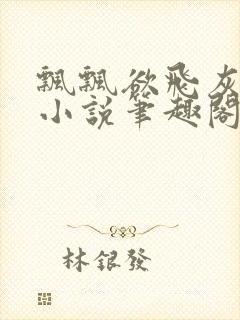 飄飄欲飛灰
小說筆趣閣
林銀發